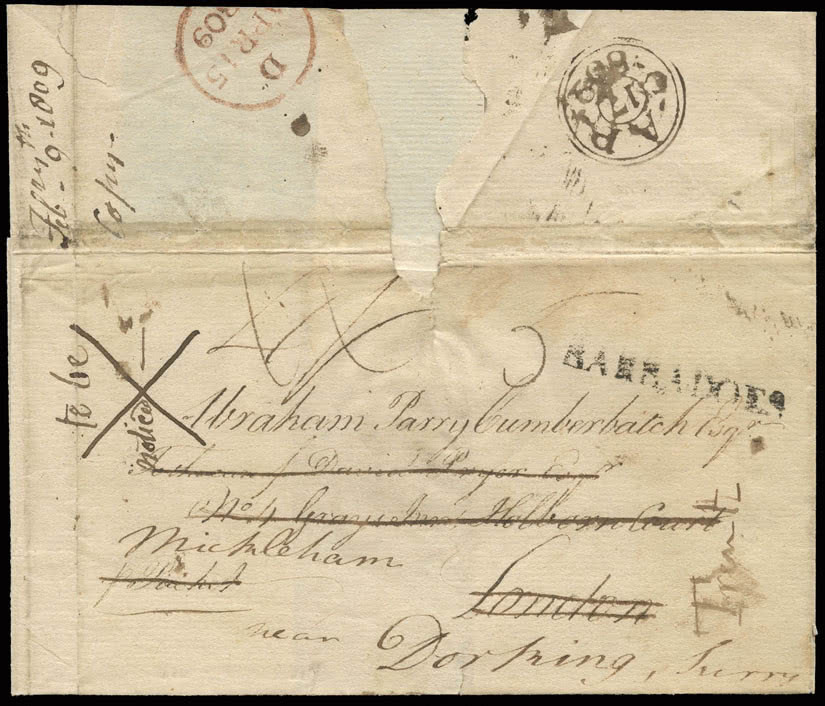 D
APR 15
809
C AP 17
809
Feb- 9-1809
Copy-
to be
noticed
BARBADOES
Abraham Parry Cumberbatch Esqr
David Pryor Esqr
No 4 Grays Inn Holborn Court
Mickleham
London
near
Dorking, Surry